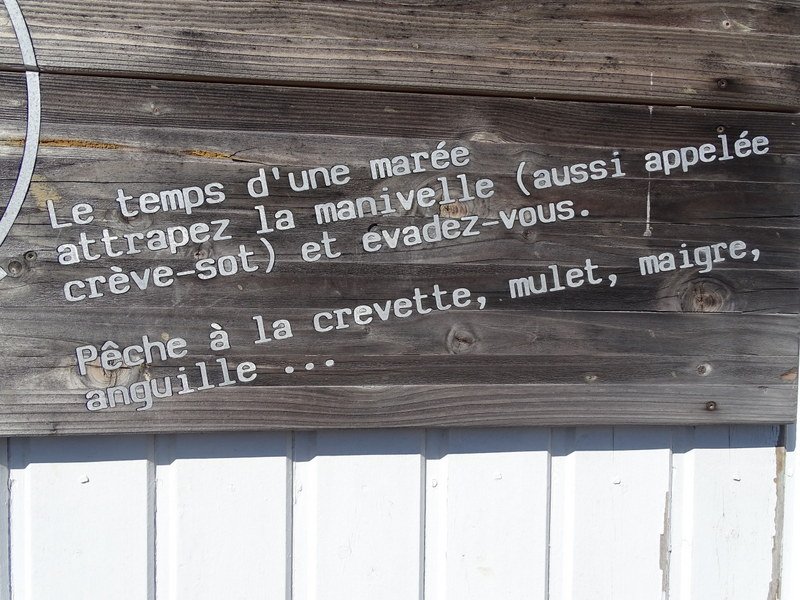 Le temps d'une marée
attrapez la manivelle (aussi appelée
crève-sot) et évadez-vous.
Pêche à la crevette, mulet, maigre,
anguille ...